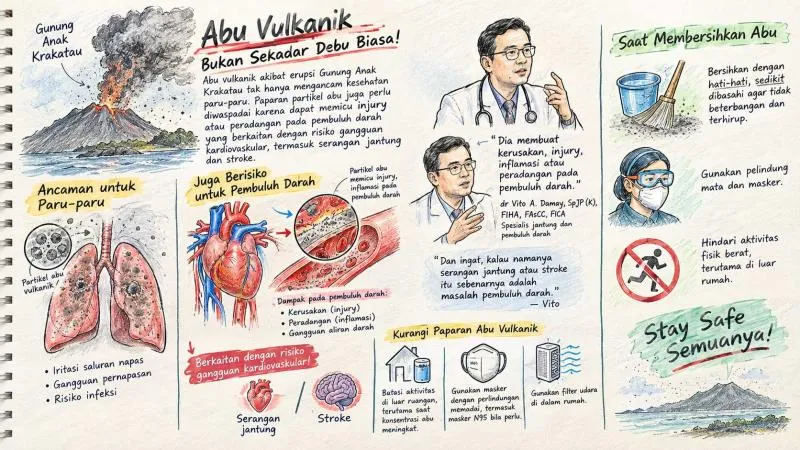 Gunung
Anak
Krakatau
Abu Vulkanik
Bukan Sekadar Debu Biasa!
Abu vulkanik akibat erupsi Gunung Anak
Krakatau tak hanya mengancam kesehatan
paru-paru. Paparan partikel abu juga perlu
diwaspadai karena dapat memicu injury
atau peradangan pada pembuluh darah
yang berkaitan dengan risiko gangguan
kardiovaskular, termasuk serangan jantung
dan stroke.
Ancaman untuk
Paru-paru
Partikel abu
vulkanik
• Iritasi saluran napas
• Gangguan pernapasan
• Risiko infeksi
Juga Berisiko
untuk Pembuluh Darah
Partikel abu
memicu injury,
inflamasi pada
pembuluh darah
Dampak pada pembuluh darah:
• Kerusakan (injury)
• Peradangan (inflamasi)
• Gangguan aliran darah
Berkaitan dengan risiko
gangguan kardiovaskular!
Serangan
jantung
/
Stroke
"Dia membuat
kerusakan, injury,
inflamasi atau
peradangan pada
pembuluh darah."
dr Vito A. Damay, SpJP (K),
FIHA, FAsCC, FICA
Spesialis jantung dan
pembuluh darah
"Dan ingat, kalau namanya
serangan jantung atau stroke
itu sebenarnya adalah
masalah pembuluh darah."
— Vito
Kurangi Paparan Abu Vulkanik
Batasi aktivitas
di luar ruangan,
terutama saat
konsentrasi abu
meningkat.
Gunakan masker
dengan perlindungan
memadai, termasuk
masker N95 bila perlu.
Gunakan filter udara
di dalam rumah.
Saat Membersihkan Abu
Bersihkan dengan
hati-hati, sedikit
dibasahi agar tidak
beterbangan dan
terhirup.
Gunakan pelindung
mata dan masker.
Hindari aktivitas
fisik berat,
terutama di luar
rumah.
Stay Safe
Semuanya!